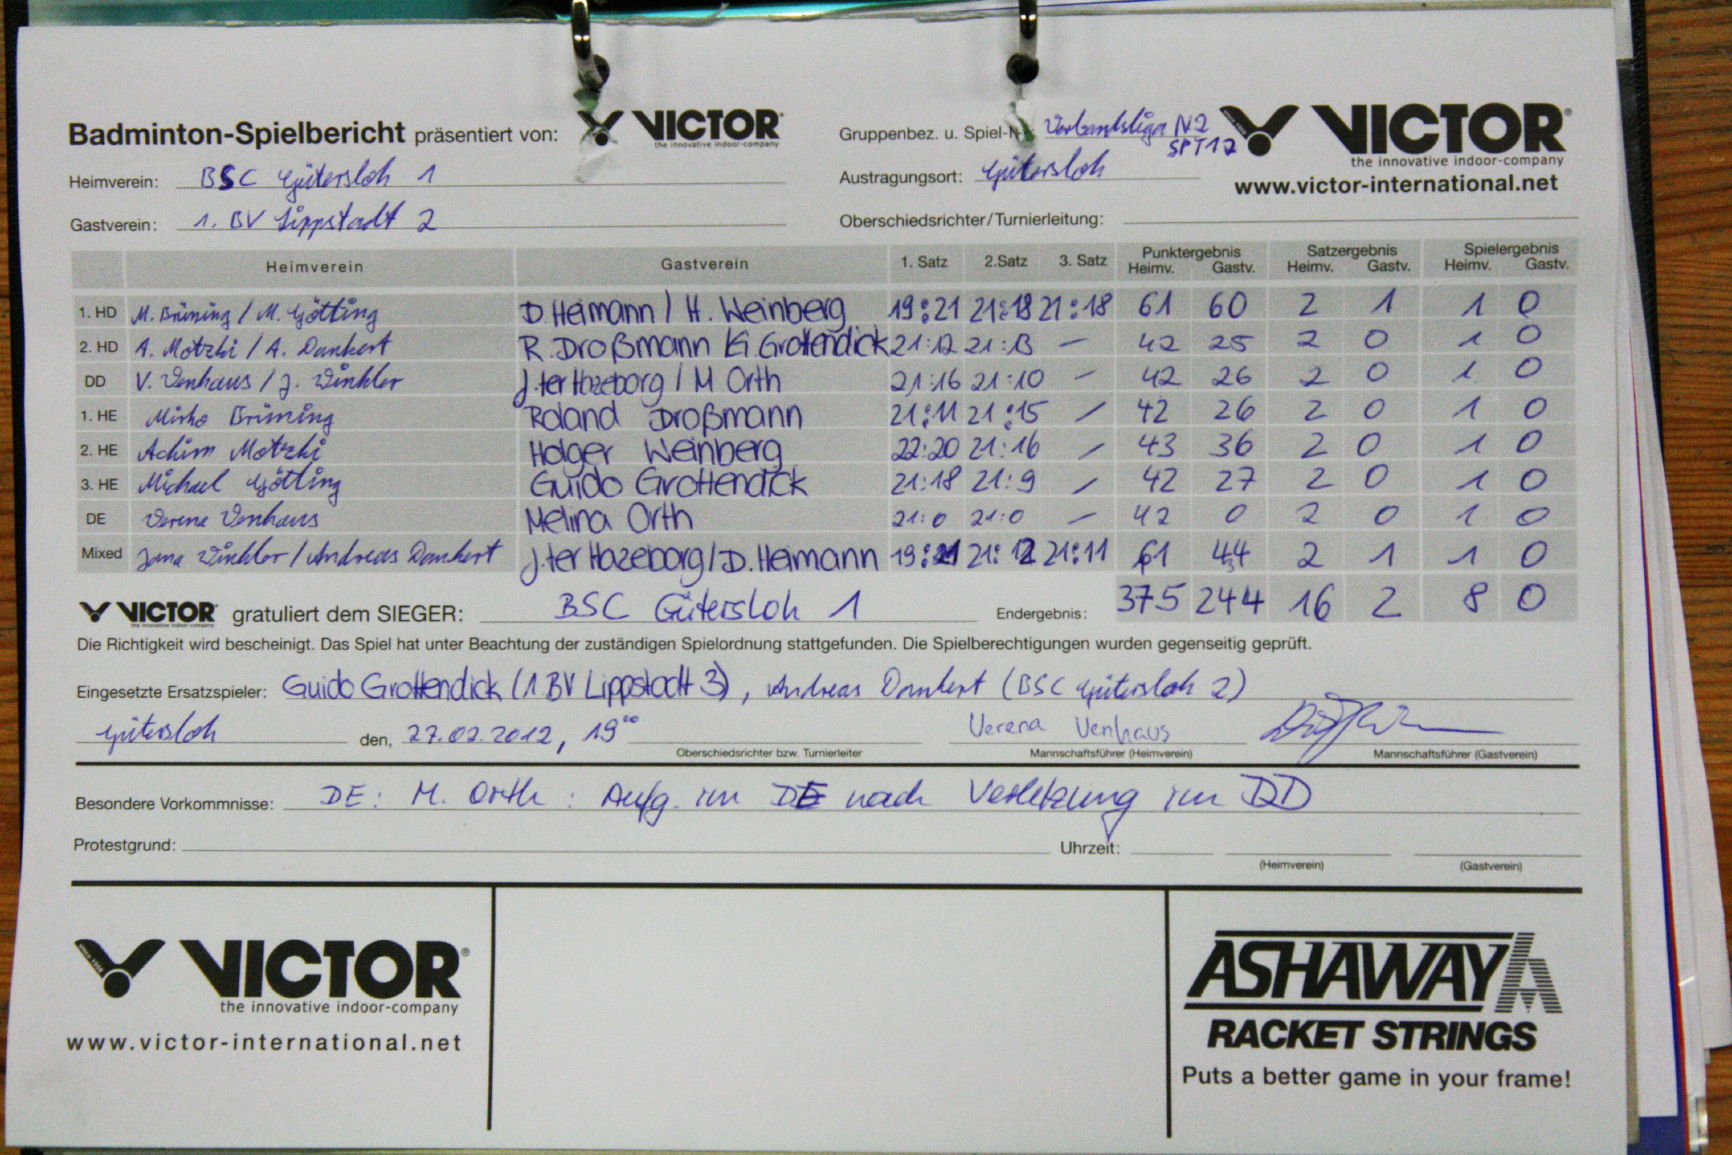 Badminton-Spielbericht präsentiert von: VICTOR the innovative indoor-company
Gruppenbez. u. Spiel-Nr.: Verbandsliga N2 SPT12
VICTOR® the innovative indoor-company
www.victor-international.net
Heimverein: BSC Gütersloh 1
Austragungsort: Gütersloh
Gastverein: 1. BV Lippstadt 2
Oberschiedsrichter/Turnierleitung:
Heimverein Gastverein 1. Satz 2.Satz 3. Satz Punktergebnis Heimv. Gastv. Satzergebnis Heimv. Gastv. Spielergebnis Heimv. Gastv.
1. HD M. Brüning / M. Götting D. Heimann / H. Weinberg 19:21 21:18 21:18 61 60 2 1 1 0
2. HD A. Motzki / A. Dankert R. Droßmann / G. Grottendick 21:12 21:13 — 42 25 2 0 1 0
DD V. Venhaus / J. Winkler J. ter Hazeborg / M Orth 21:16 21:10 — 42 26 2 0 1 0
1. HE Mirko Brüning Roland Droßmann 21:11 21:15 — 42 26 2 0 1 0
2. HE Achim Motzki Holger Weinberg 22:20 21:16 — 43 36 2 0 1 0
3. HE Michael Götting Guido Grottendick 21:18 21:9 — 42 27 2 0 1 0
DE Verena Venhaus Melina Orth 21:0 21:0 — 42 0 2 0 1 0
Mixed Jana Winkler / Andreas Dankert J. ter Hazeborg / D. Heimann 19:21 21:12 21:11 61 44 2 1 1 0
VICTOR the innovative indoor-company gratuliert dem SIEGER: BSC Gütersloh 1 Endergebnis: 375 244 16 2 8 0
Die Richtigkeit wird bescheinigt. Das Spiel hat unter Beachtung der zuständigen Spielordnung stattgefunden. Die Spielberechtigungen wurden gegenseitig geprüft.
Eingesetzte Ersatzspieler: Guido Grottendick (1 BV Lippstadt 3), Andreas Dankert (BSC Gütersloh 2)
Gütersloh den, 27.02.2012, 19⁰⁰ Verena Venhaus
Oberschiedsrichter bzw. Turnierleiter Mannschaftsführer (Heimverein) Mannschaftsführer (Gastverein)
Besondere Vorkommnisse: DE: M. Orth: Aufg. im DE nach Verletzung im DD
Protestgrund: Uhrzeit:
(Heimverein) (Gastverein)
VICTOR®
the innovative indoor-company
www.victor-international.net
ASHAWAY
RACKET STRINGS
Puts a better game in your frame!